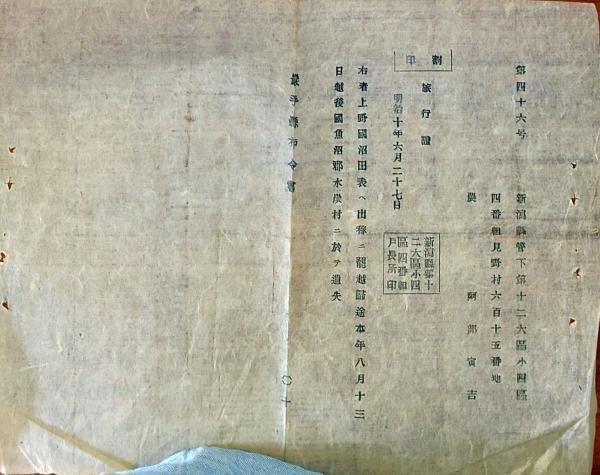 第四十六号
新潟縣管下第十二大區小四區
四番組見野村六百十五番地
農 阿部寅吉
割印
旅行證
明治十年六月二十七日
新潟縣第十
二大區小四
區四番組
戸長所印
右者上野國沼田表ヘ出稼ニ罷越歸途本年八月十三
日越後國魚沼郡水成村ニ於テ遺失
岩手縣布令書
〇十